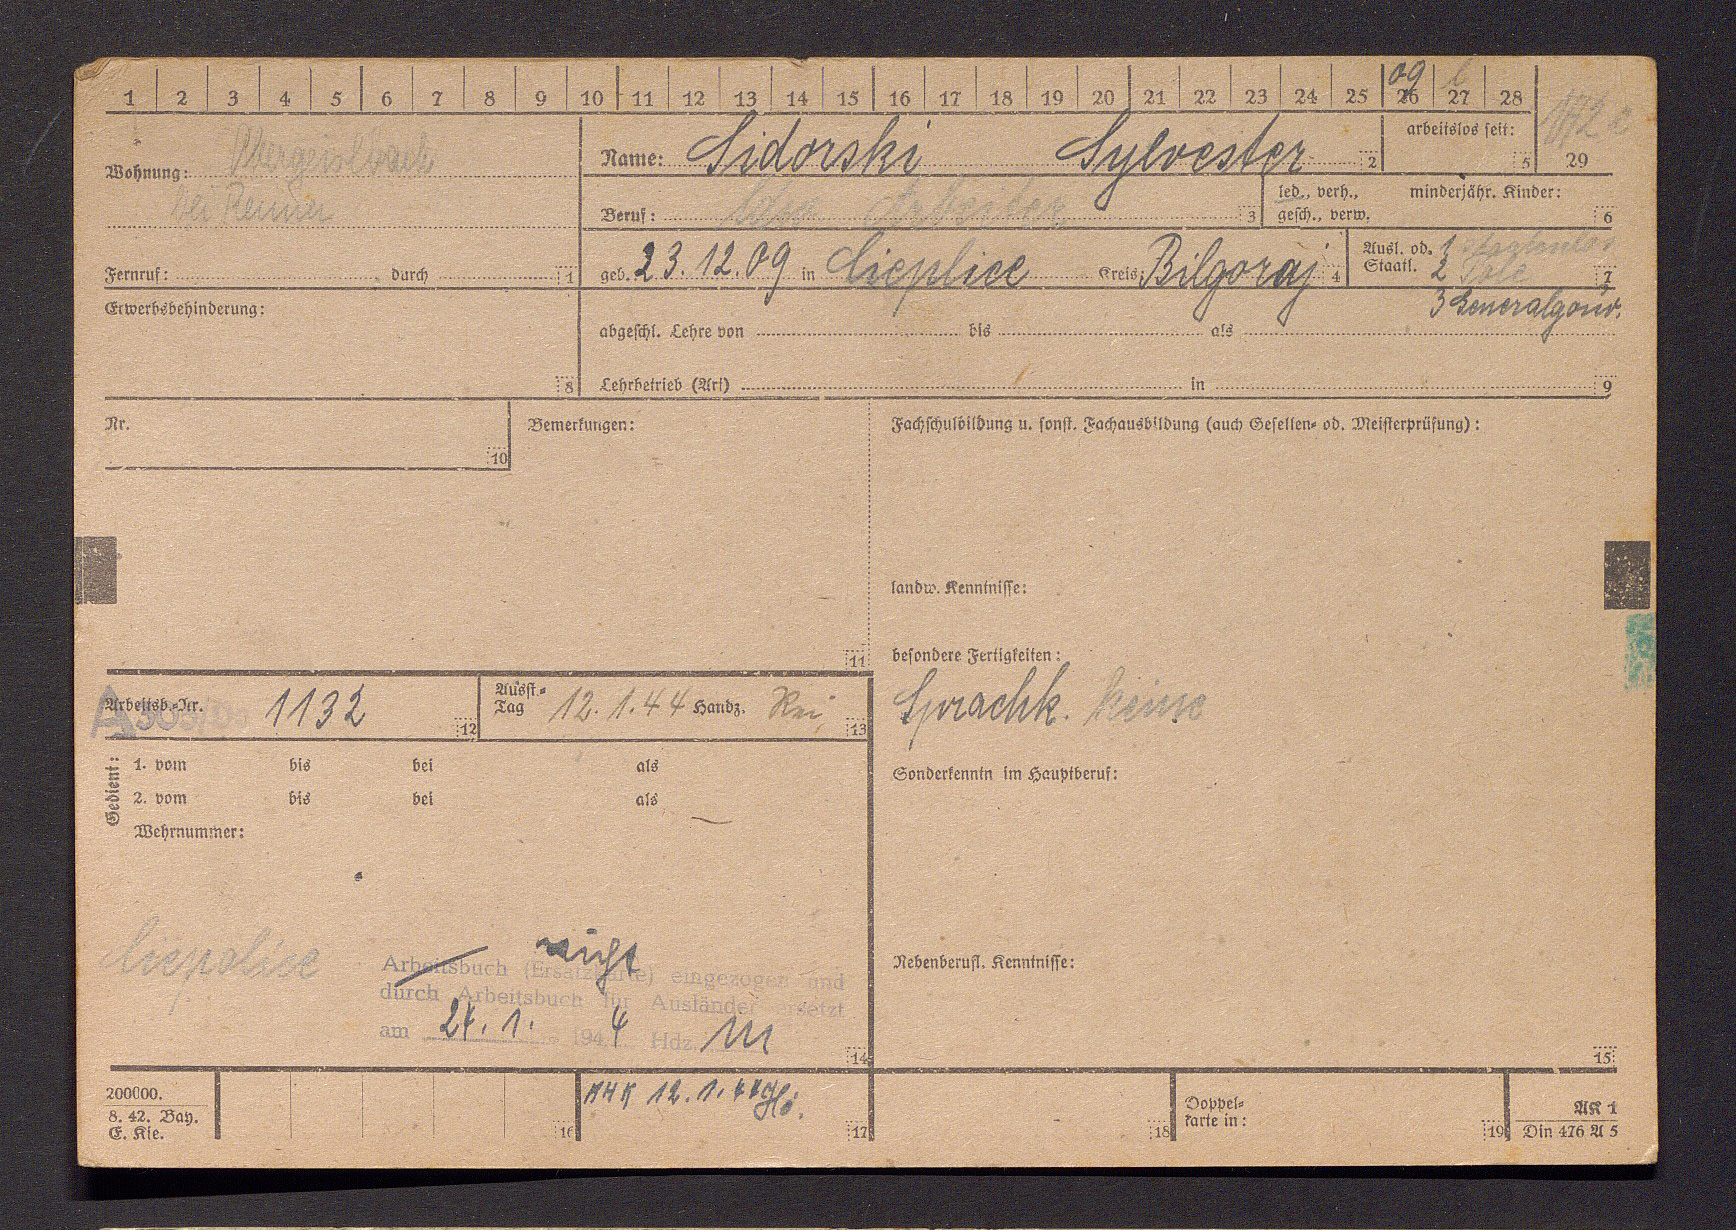 1 2 3 4 5 6 7 8 9 10 11 12 13 14 15 16 17 18 19 20 21 22 23 24 25 26 27 28
09
Wohnung:
bei
Name: Sidorski Sylvester 2
arbeitslos seit: 5
29
Beruf: Arbeiter 3
led., verh., minderjähr. Kinder:
gesch., verw. 6
Fernruf: durch 1
geb. 23.12.09 in Cieplice Kreis: Bilgoraj 4
Ausl. od. 1
Staatl. 2 Pole 7
3 Generalgouv.
Erwerbsbehinderung:
8
abgeschl. Lehre von bis als
Lehrbetrieb (Art) in 9
Nr.
10
Bemerkungen:
11
Fachschulbildung u. sonst. Fachausbildung (auch Gesellen- od. Meisterprüfung):
landw. Kenntnisse:
besondere Fertigkeiten:
Sprachk. keine
Arbeitsb.-Nr. 1132 12
A 303
Ausst.-Tag 12.1.44 Handz. Rei 13
Gedient:
1. vom bis bei als
2. vom bis bei als
Wehrnummer:
Sonderkenntn im Hauptberuf:
Nebenberufl. Kenntnisse:
15
Ciepolice
nicht
Arbeitsbuch (Ersatzkarte) eingezogen und
durch Arbeitsbuch für Ausländer ersetzt
am 24.1. 1944 Hdz.
14
200000.
8. 42. Bay.
E. Kie.
16
12.1.44
17
18
Doppel-
karte in:
19
AK 1
Din 476 A 5